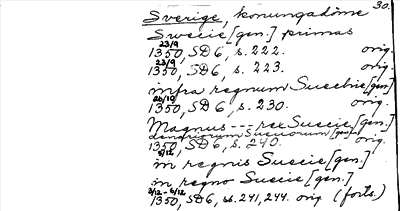 30.
Sverige, konungadöme
Swecie [gen.] primas
23/9
1350, SD6, s. 222. orig.
23/9
1350, SD6, s. 223. orig.
infra regnum Suechie [gen.]
26/10
1350, SD6, s. 230. orig.
Magnus --- rex Suecie [gen.]
1350, SD6, s. 240. orig.
5/12
in regnis Suecie [gen.]
in regno Suecie [gen.]
1350, SD6, ss. 241, 244. orig. (forts.)